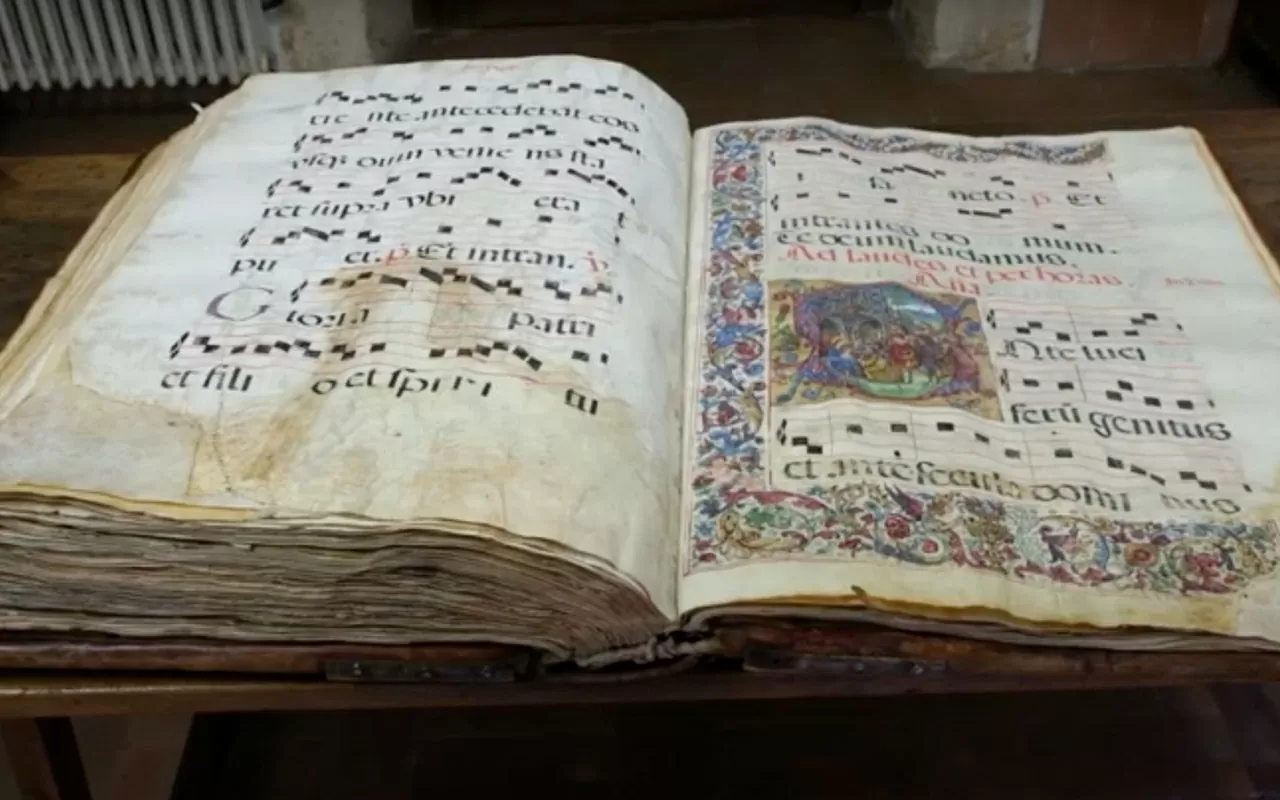 te ante.antecedebat eos
usqȝ dum venie ns sta
ret supra vbi era t
pu er. p̄. Et intran. v̄
Gloria patri
et fili o et spiri tui
sa ncto. p̄ Et
intrantes do mum.
te deum laudamus.
Ad laudes et per horas.
Aña
Ante luci
ferū genitus
et ante secula domi nus